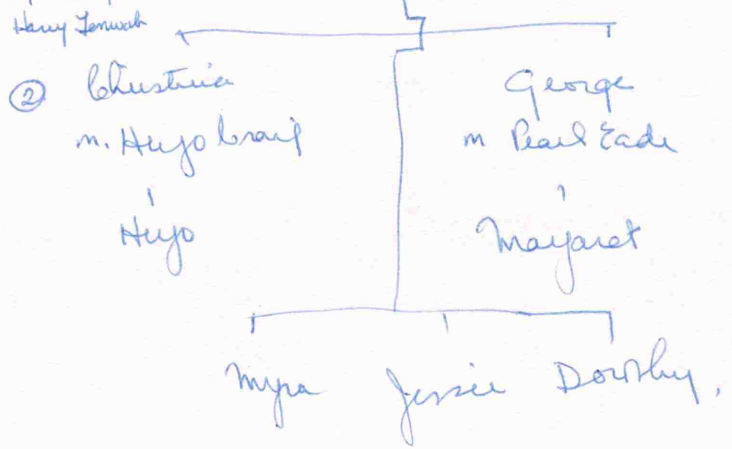 Harry
② Christina
m. Hugo Craig
Hugo
George
m Pearl Eade
Margaret
Myra Jessie Dorothy,